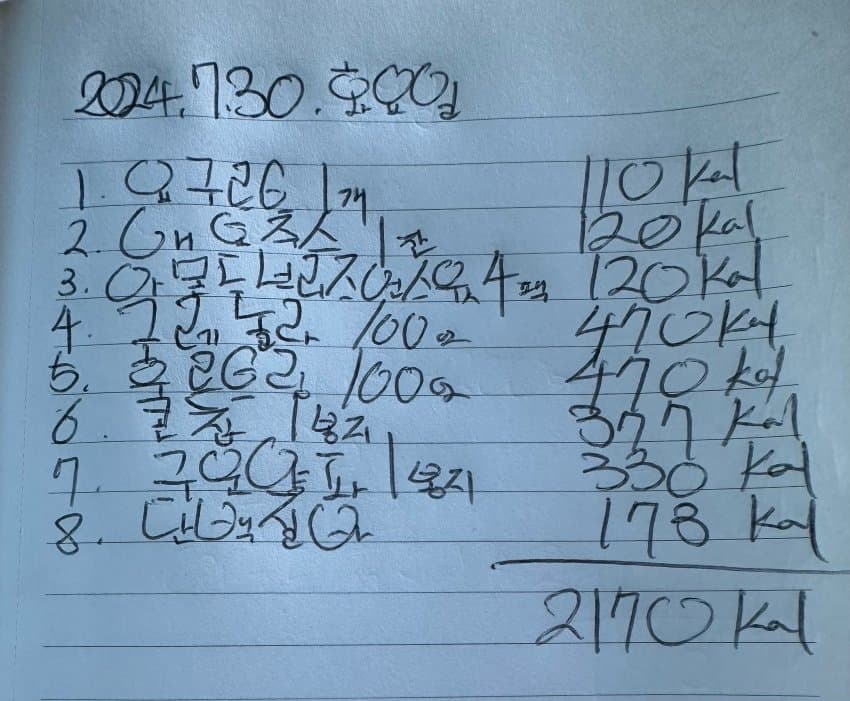 2024.7.30.화요일
1. 요구르트 1개 110 Kcal
2. 야채쥬스 1잔 120 Kcal
3. 아몬드브리즈언스윗 4팩 120 Kcal
4. 그래놀라 100g 470 Kcal
5. 후르트링 100g 470 kcal
6. 콘칩 1봉지 377 Kcal
7. 구운양파 1봉지 330 Kcal
8. 단백질바 178 Kcal
2170 Kcal